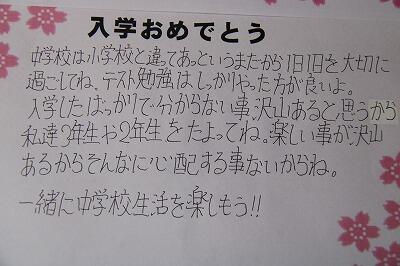 入学おめでとう
中学校は小学校と違ってあっというまだから1日1日を大切に
過ごしてね。テスト勉強はしっかりやった方が良いよ。
入学したばっかりで分からない事、沢山あると思うから
私達3年生や2年生をたよってね。楽しい事が沢山
あるからそんなに心配する事ないからね。
一緒に中学校生活を楽しもう!!